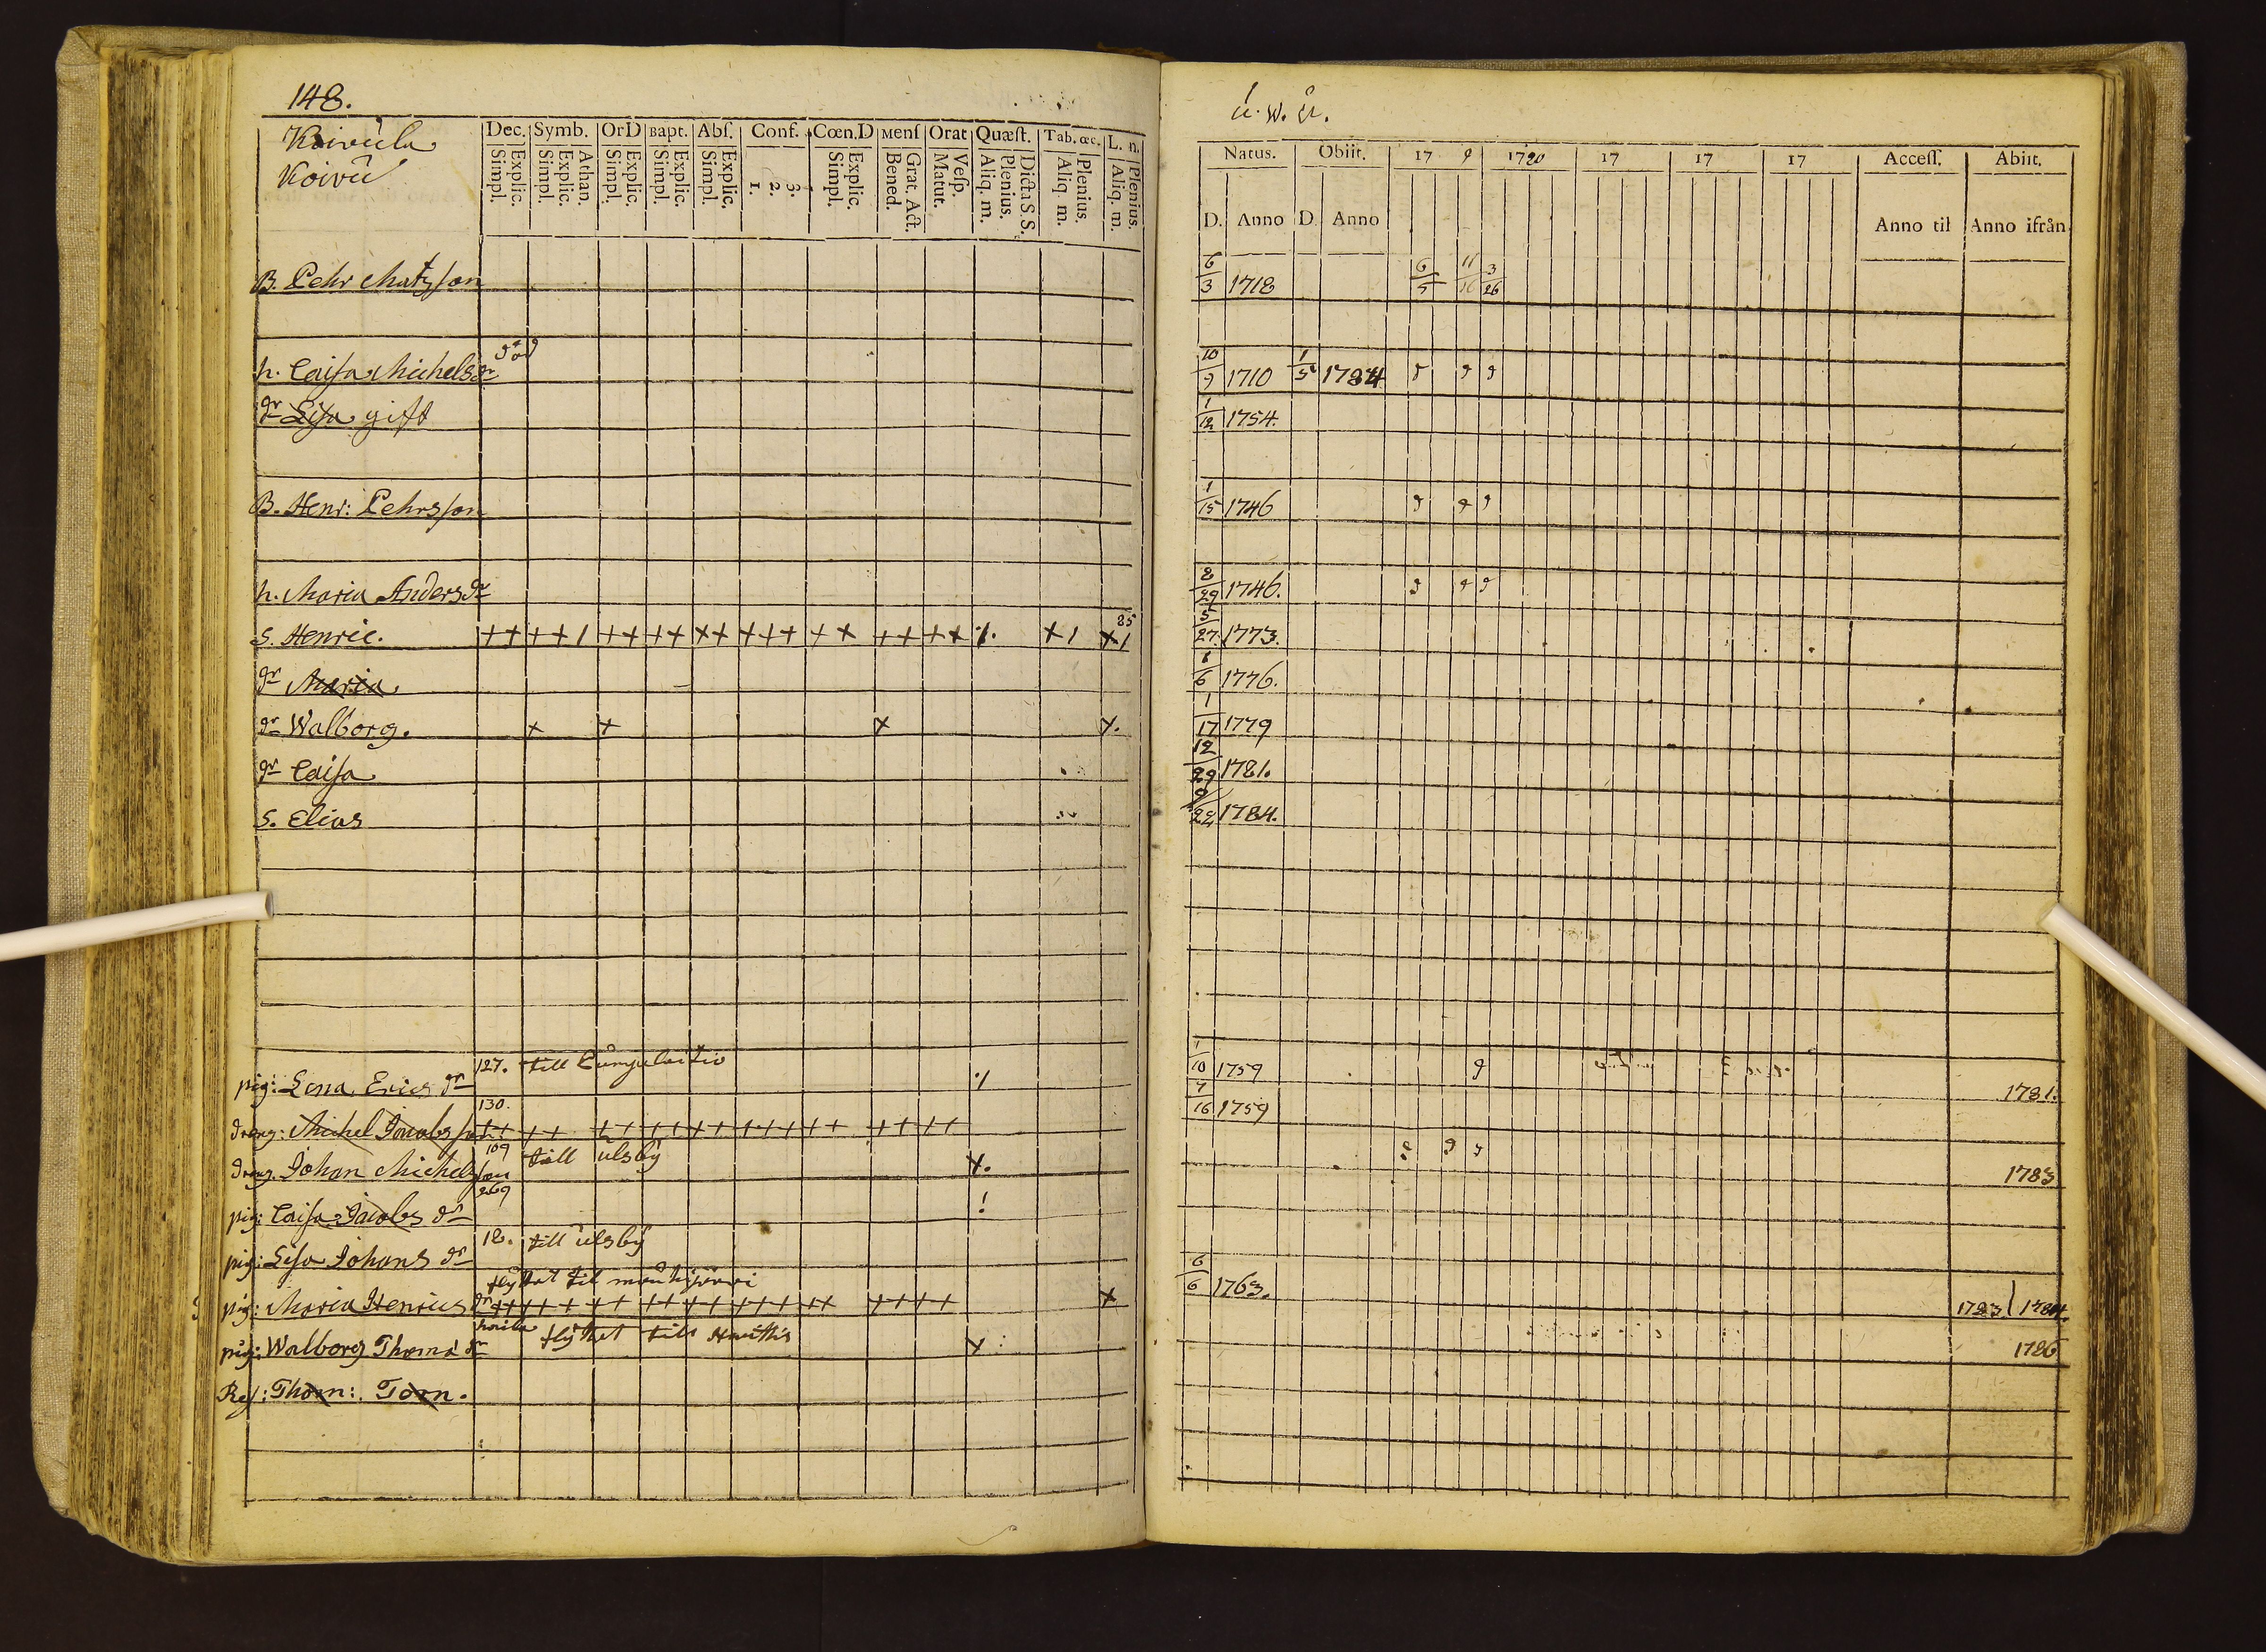 148.
Koivula
Koivu
Dec. Symb. OrD Bapt. Abſ. Conf. Cœn.D Menſ Orat Quæſt. Tab. œc. L. n.
Simpl. Explic. Simpl. Explic. Athan. Simpl. Explic. Simpl. Explic. Simpl. Explic. 1. 2. 3. Simpl. Explic. Bened. Grat. Act. Matut. Veſp. Aliq. m. Plenius. Dicta S S. Aliq. m. Plenius. Aliq. m. Plenius.
B. Pehr Matzson
h. Caisa Michelsdr död
dr Lisa gift
B. Henr: Pehrsson
h. Maria Andersdr
S. Henric. ++ ++/ ++ ++ ++ +++ ++ ++ ++ /. +/ 85 +/
dr Maria
dr Walborg. + + + +.
dr Caisa
S. Elias
pig: Lena Ericsdr 127. till /
dreng: Michel Jacobsson 130. ++ ++ ++ ++ ++ +++ ++ ++ ++
dreng. Johan Michelsson 109 till ulsby +.
pig: Caisa Jacobs dr 269 !
pig: Lisa Johans dr 12. till ulsby
pig: Maria Henrics dr flyttat til ++ +++ ++ ++ ++ +++ ++ ++ ++ +
pig: Walborg Thoma dr flyttat till +
Ref: Thom: Torn.
u. w. å.
Natus. Obiit. 17 9 1780 17 17 17 Acceſſ. Abiit.
D. Anno D. Anno Anno til Anno ifrån
6/3 1718 6/5 11/10 3/26
10/9 1710 1/5 1784
1/12 1754.
1/15 1746
8/29 1746.
5/27. 1773.
1/6 1776.
1/17 1779
12/29 1781.
9/22 1784.
1/10 1759 1781.
7/16 1759
1783
6/6 1763. 1783/1784.
1786